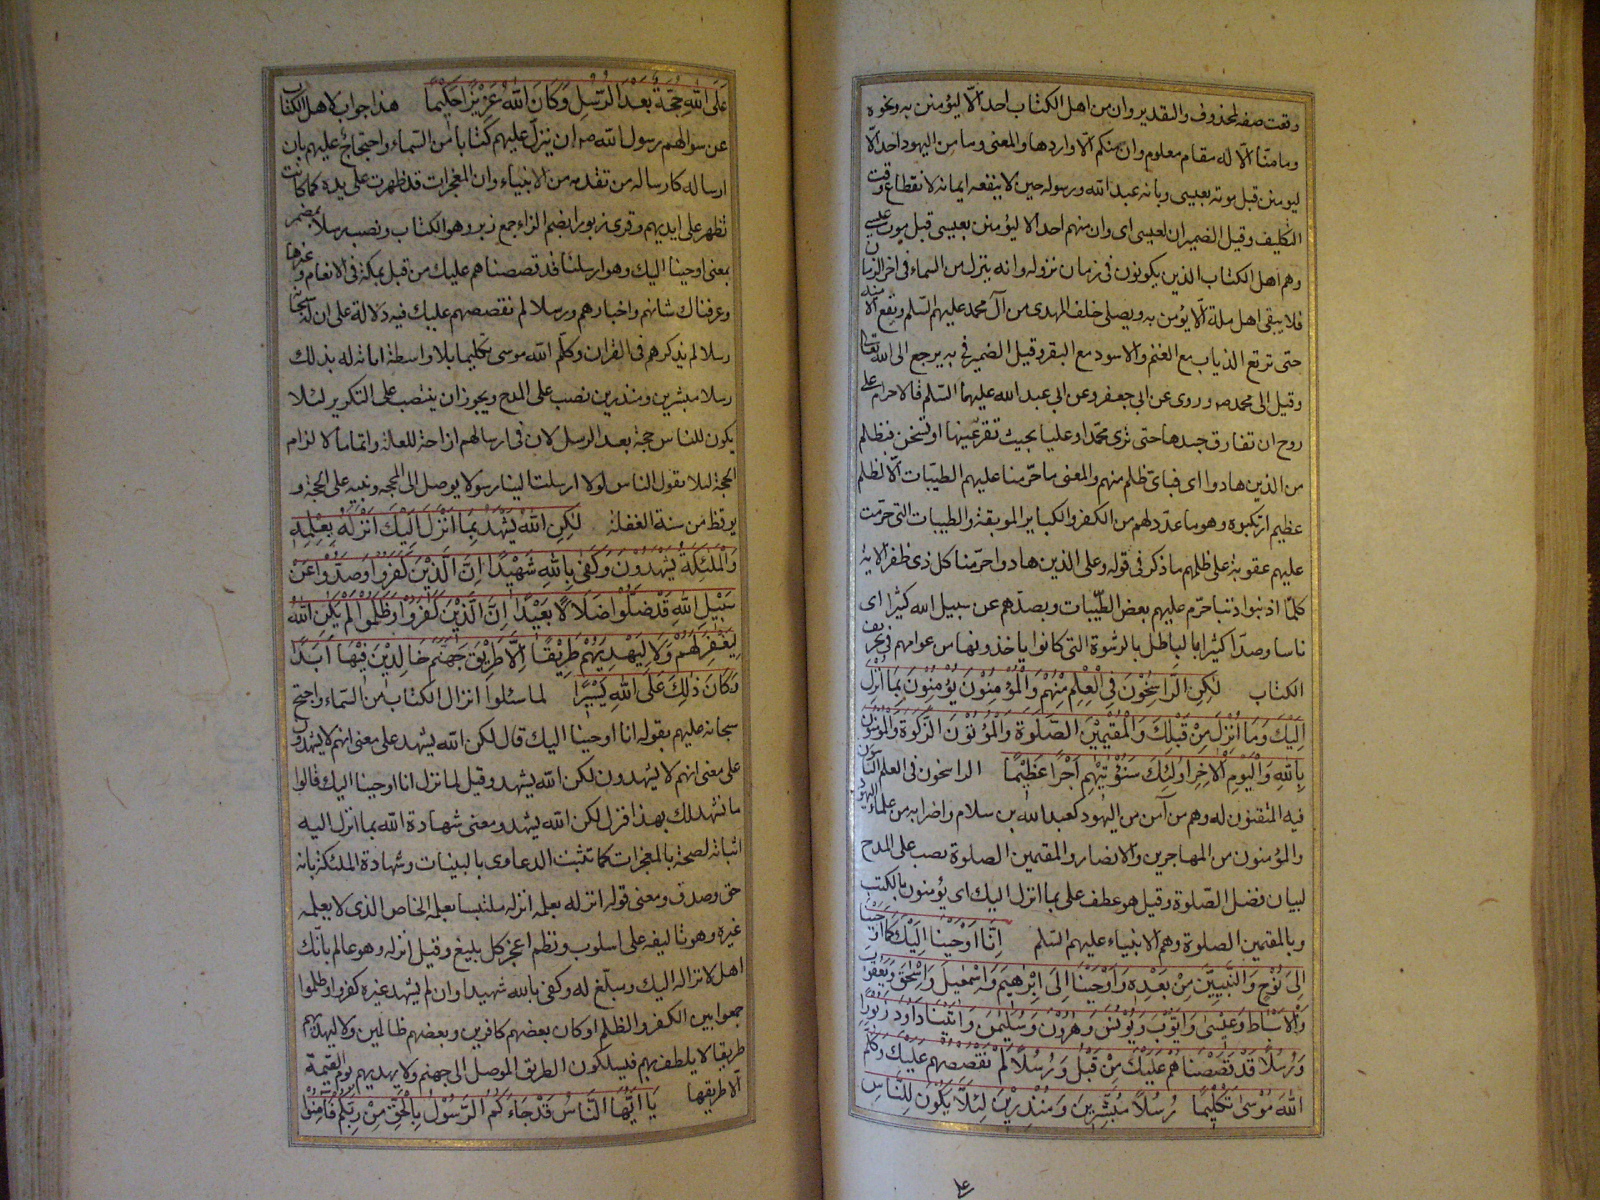 وقعت صفه لمحذوف والتقدير وان من اهل الكتاب احد الا ليؤمنن به ونحوه
وما منا الا له مقام معلوم وان منكم الا واردها والمعنى وما من اليهود احد الا
ليومنن قبل موته بعيسى وبانه عبد الله ورسوله حين لا ينفعه ايمانه لانقطاع وقت
التكليف وقيل الضميران لعيسى اى وان منهم احد الا ليؤمنن بعيسى قبل موت عيسى
وهم اهل الكتاب الذين يكونون فى زمان نزوله وانه ينزل من السماء فى اخر الزمان
فلا يبقى اهل ملة الا يؤمن به ويصلى خلف المهدى من آل محمد عليهم السلم وتقع الامنه
حتى ترتع الذياب مع الغنم والاسود مع البقر وقيل الضمير فى به يرجع الى الله تعالى
وقيل الى محمد صه وروى عن ابى جعفر وعن ابى عبد الله عليهما السلم قالا حرام على
روح ان تفارق جسدها حتى ترى محمدا وعليا بحيث تقر عينها او تسخن فبظلم
من الذين هادوا اى فباى ظلم منهم والمعنى ما حرمنا عليهم الطيبات الا لظلم
عظيم ارتكبوه وهو ما عدد لهم من الكفر والكباير الموبقة والطيبات التى حرمت
عليهم عقوبة على ظلمهم ما ذكر فى قوله وعلى الذين هادوا حرمنا كل ذى ظفر الاية
كلما اذنبوا ذنبا حرم عليهم بعض الطيبات وبصدهم عن سبيل الله كثيرا اى
ناسا وصدا كثيرا بالباطل بالرشوة التى كانوا ياخذونها من عوامهم فى تحريف
الكتاب لَكِنِ الرَّاسِخُونَ فِى الْعِلْمِ مِنْهُمْ وَالْمُؤْمِنُونَ يُؤْمِنُونَ بِمَا أُنْزِلَ
اِلَيْكَ وَمَا أُنْزِلَ مِنْ قَبْلِكَ وَالْمُقِيمِينَ الصَّلوةَ وَالْمُؤْتُونَ الزَّكوةَ وَالْمُؤْمِنُونَ
بِاللهِ وَالْيَوْمِ الْاخِرِ اُولئِكَ سَنُؤْتِيهِمْ اَجْرًا عَظِيمًا الراسخون فى العلم الثابتون
فيه المتقنون له وهم من آمن من اليهود كعبد الله بن سلام واضرابه من علماء اليهود
والمؤمنون من المهاجرين والانصار والمقيمين الصلوة نصب على المدح
لبيان فضل الصلوة وقيل هو عطف على بما انزل اليك اى يؤمنون بالكتب
وبالمقيمين الصلوة وهم الانبياء عليهم السلم اِنَّا اَوْحَيْنَا اِلَيْكَ كَمَا اَوْحَيْنَا
اِلى نُوحٍ وَالنَّبِيِّينَ مِنْ بَعْدِهِ وَاَوْحَيْنَا اِلى اِبْرهِيمَ وَاِسْمعِيلَ وَاِسْحقَ وَيَعْقُوبَ
وَالْاَسْبَاطِ وَعِيسى وَاَيُّوبَ وَيُونُسَ وَهرُونَ وَسُلَيْمنَ وَاتَيْنَا دَاوُدَ زَبُورًا
وَرُسُلًا قَدْ قَصَصْنَاهُمْ عَلَيْكَ مِنْ قَبْلُ وَرُسُلًا لَمْ نَقْصُصْهُمْ عَلَيْكَ وَكَلَّمَ
اللهُ مُوسى تَكْلِيمًا رُسُلًا مُبَشِّرِينَ وَمُنْذِرِينَ لِئَلَّا يَكُونَ لِلنَّاسِ
عَلَى اللهِ حُجَّةٌ بَعْدَ الرُّسُلِ وَكَانَ اللهُ عَزِيزًا حَكِيمًا هذا جواب لاهل الكتاب
عن سوالهم رسول الله صه ان ينزل عليهم كتابا من السماء واحتجاج عليهم بان
ارساله كارسال من تقدمه من الانبياء وان المعجزات قد ظهرت على يده كما كانت
تظهر على ايديهم وقرى زبورا بضم الزاء جمع زبر وهو الكتاب ونصب رسلا بمضمر
بمعنى اوحينا اليك وهو ارسلنا قد قصصناهم عليك من قبل بمكة فى الانعام وغيرها
وعرفناك شانهم واخبارهم ورسلا لم نقصصهم عليك فيه دلالة على ان له سبحانه
رسلا لم يذكرهم فى القران وكلم الله موسى تكليما بلا واسطة ابانة له بذلك
رسلا مبشرين ومنذرين نصب على المدح ويجوز ان ينتصب على التكرير لئلا
يكون للناس حجة بعد الرسل لان فى ارسالهم ازاحة للعلة واتماما لالزام
الحجة لئلا يقول الناس لولا ارسلت الينا رسولا يوصل الى المحجه وينبه على الحجة و
يوقظ من سنة الغفلة لكِنِ اللهُ يَشْهَدُ بِمَا اَنْزَلَ اِلَيْكَ اَنْزَلَهُ بِعِلْمِهِ
وَالْمَلئِكَةُ يَشْهَدُونَ وَكَفى بِاللهِ شَهِيدًا اِنَّ الَّذِينَ كَفَرُوا وَصَدُّوا عَنْ
سَبِيلِ اللهِ قَدْ ضَلُّوا ضَلَالًا بَعِيدًا اِنَّ الَّذِينَ كَفَرُوا وَظَلَمُوا لَمْ يَكُنِ اللهُ
لِيَغْفِرَ لَهُمْ وَلَا لِيَهْدِيَهُمْ طَرِيقًا اِلَّا طَرِيقَ جَهَنَّمَ خَالِدِينَ فِيهَا اَبَدًا
وَكَانَ ذلِكَ عَلَى اللهِ يَسِيرًا لما سئلوا انزال الكتاب من السماء واحتج
سبحانه عليهم بقوله انا اوحينا اليك قال لكن الله يشهد على معنى انهم لا يشهدون
على معنى انهم لا يشهدون لكن الله يشهد وقيل لما نزل انا اوحينا اليك قالوا
ما نشهد لك بهذا فنزل لكن الله يشهد ومعنى شهادة الله بما انزل اليه
اثباته لصحته بالمعجزات كما تثبت الدعاوى بالبينات وشهادة الملئكة بانه
حق وصدق ومعنى قوله انزله بعلمه انزله ملتبسا بعلمه الخاص الذى لا يعلمه
غيره وهو تاليفه على اسلوب ونظم اعجز كل بليغ وقيل انزله وهو عالم بانك
اهل لانزاله اليك ومبلغ له وكفى بالله شهيدا وان لم يشهد غيره كفروا وظلموا
جمعوا بين الكفر والظلم او كان بعضهم كافرين وبعضهم ظالمين ولا ليهديهم
طريقا لا يلطف بهم فيسلكون الطريق الموصل الى جهنم ولا يهديهم يوم القيمة
الا طريقها يَا اَيُّهَا النَّاسُ قَدْ جَاءَكُمُ الرَّسُولُ بِالْحَقِّ مِنْ رَبِّكُمْ فَامِنُوا